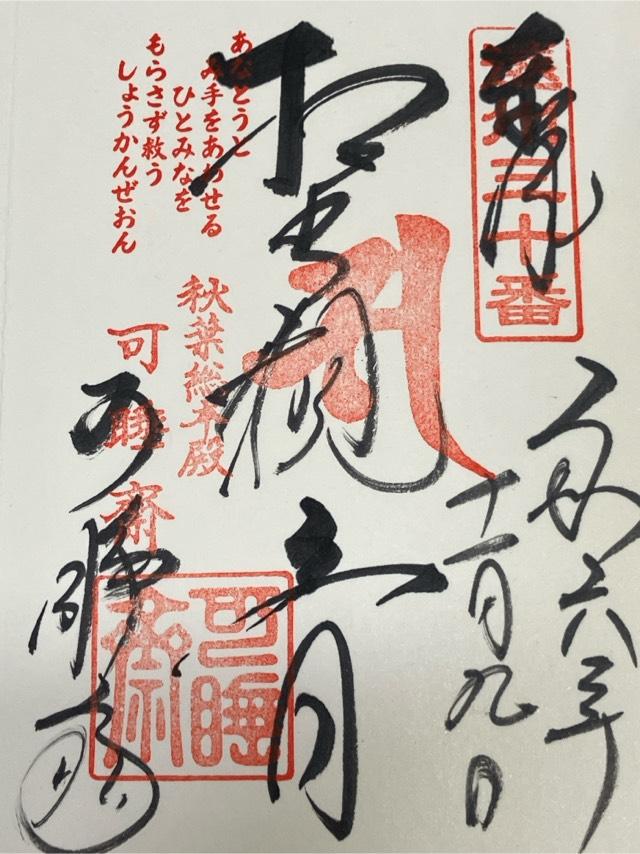 奉拝
遠州三十番
令和六年
十一月九日
聖観音
あなとうと
み手をあわせる
ひとみなを
もらさず救う
しょうかんぜおん
秋葉総本殿
可睡斎
可睡斎
可睡斎